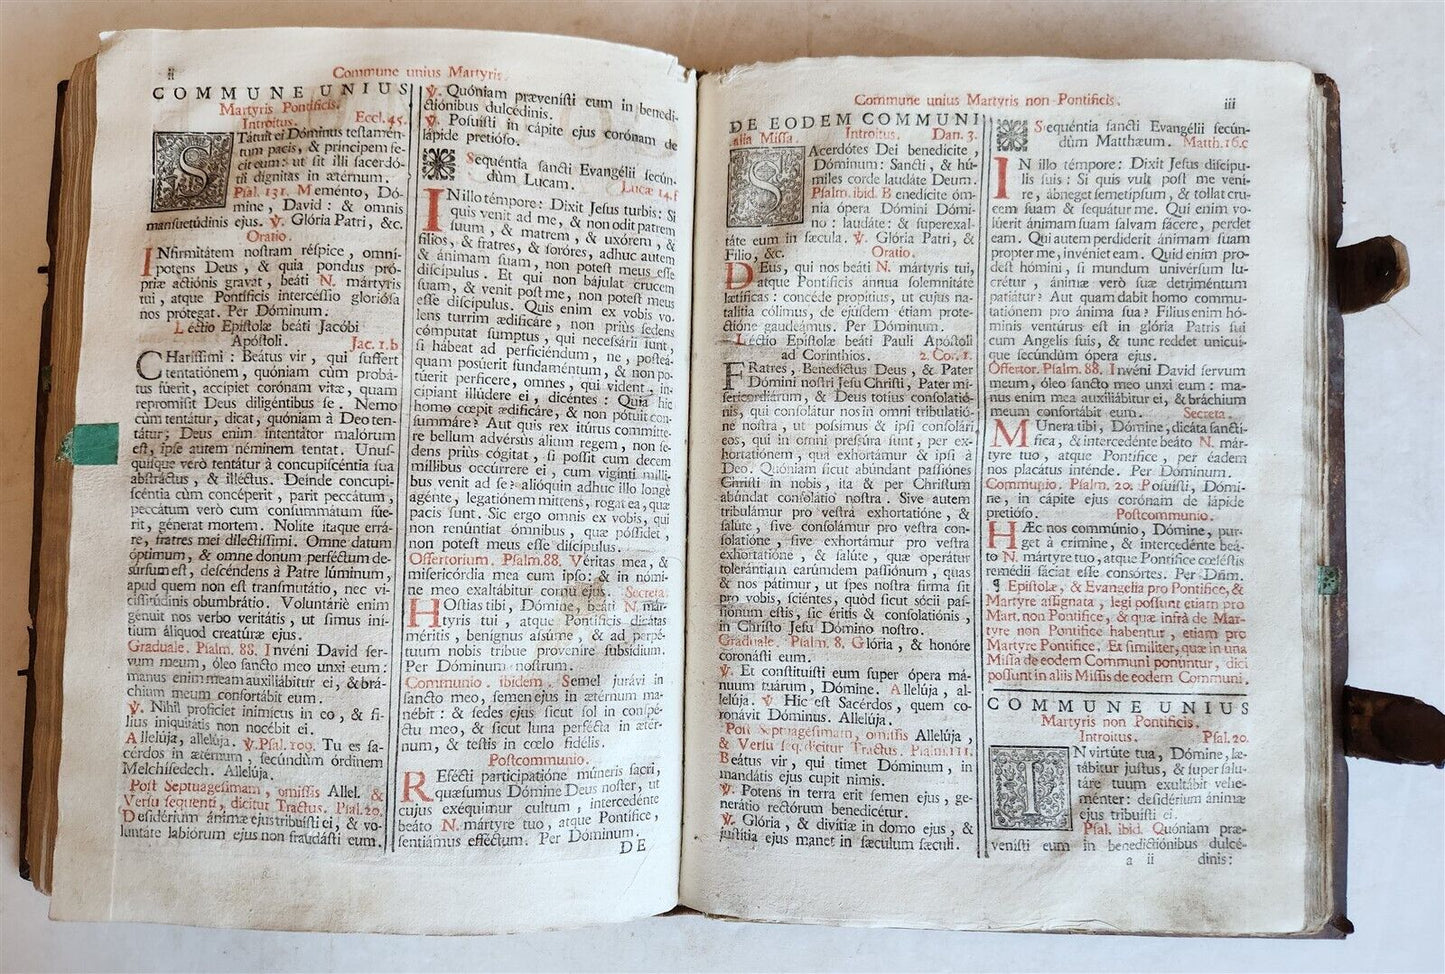 ii
Commune unius Martyris.
COMMUNE UNIUS
Martyris Pontificis.
Introitus. Eccl. 45.
STátuit ei Dóminus testamén-
tum pacis, & príncipem fe-
cit eum: ut sit illi sacerdó-
tii dígnitas in ætérnum.
Psal. 131. Meménto, Dó-
mine, David: & omnis
mansuetúdinis ejus. ℣. Glória Patri, &c.
Oratio.
INfirmitátem nostram réspice, omní-
potens Deus, & quia pondus pró-
priæ actiónis gravat, beáti N. mártyris
tui, atque Pontíficis intercéssio gloriósa
nos prótegat. Per Dóminum.
Léctio Epístolæ beáti Jacóbi
Apóstoli. Jac. 1. b
CHaríssimi: Beátus vir, qui suffert
tentatiónem, quóniam cùm probá-
tus fúerit, accípiet corónam vitæ, quam
repromísit Deus diligéntibus se. Nemo
cùm tentátur, dicat, quóniam à Deo ten-
tátur; Deus enim intentátor malórum
est, ipse autem néminem tentat. Unus-
quísque verò tentátur à concupiscéntia sua
abstráctus, & illéctus. Deinde concupi-
scéntia cùm concéperit, parit peccátum,
peccátum verò cum consummátum fúe-
rit, génerat mortem. Nolíte itaque errá-
re, fratres mei dilectíssimi. Omne datum
óptimum, & omne donum perféctum de-
súrsum est, descéndens à Patre lúminum,
apud quem non est transmutátio, nec vi-
cissitúdinis obumbrátio. Voluntáriè enim
génuit nos verbo veritátis, ut simus iní-
tium áliquod creatúræ ejus.
Graduale. Psalm. 88. Invéni David ser-
vum meum, óleo sancto meo unxi eum:
manus enim mea auxiliábitur ei, & brá-
chium meum confortábit eum.
℣. Nihil profíciet inimícus in eo, & fí-
lius iniquitátis non nocébit ei.
Allelúja, allelúja. ℣. Psal. 109. Tu es sa-
cérdos in ætérnum, secúndùm órdinem
Melchísedech. Allelúja.
Post Septuagesimam, omissis Allel. &
Versu sequenti, dicitur Tractus. Psal. 20.
Desidérium ánimæ ejus tribuísti ei, & vo-
luntáte labiórum ejus non fraudásti eum.
℣. Quóniam prævenísti eum in benedi-
ctiónibus dulcédinis.
℣. Posuísti in cápite ejus corónam de
lápide pretióso.
Sequéntia sancti Evangélii secún-
dùm Lucam. Lucæ 14. f
IN illo témpore: Dixit Jesus turbis: Si
quis venit ad me, & non odit patrem
suum, & matrem, & uxórem, &
fílios, & fratres, & soróres, adhuc autem
& ánimam suam, non potest meus esse
discípulus. Et qui non bájulat crucem
suam, & venit post me, non potest meus
esse discípulus. Quis enim ex vobis vo-
lens turrim ædificáre, non priùs sedens
cómputat sumptus, qui necessárii sunt,
si hábeat ad perficiéndum, ne, posteá-
quam posúerit fundaméntum, & non po-
túerit perfícere, omnes, qui vident, in-
cípiant illúdere ei, dicéntes: Quia hic
homo cœpit ædificáre, & non pótuit con-
summáre? Aut quis rex itúrus commítte-
re bellum advérsùs álium regem, non se-
dens priùs cógitat, si possit cum decem
míllibus occúrrere ei, cum vigínti mílli-
bus venit ad se? alióquin adhuc illo longè
agénte, legatiónem mittens, rogat ea, quæ
pacis sunt. Sic ergo omnis ex vobis, qui
non renúntiat ómnibus, quæ póssidet,
non potest meus esse discípulus.
Offertorium. Psalm. 88. Véritas mea, &
misericórdia mea cum ipso: & in nómi-
ne meo exaltábitur cornu ejus. Secreta.
HOstias tibi, Dómine, beáti N. már-
tyris tui, atque Pontíficis dicátas
méritis, benígnus assúme, & ad perpé-
tuum nobis tríbue proveníre subsídium.
Per Dóminum nostrum.
Communio. ibidem. Semel jurávi in
sancto meo, semen ejus in ætérnum ma-
nébit: & sedes ejus sicut sol in conspé-
ctu meo, & sicut luna perfécta in ætér-
num, & testis in cœlo fidélis.
Postcommunio.
REfécti participatióne múneris sacri,
quǽsumus Dómine Deus noster, ut
cujus exéquimur cultum, intercedénte
beáto N. mártyre tuo, atque Pontífice,
sentiámus efféctum. Per Dóminum.
DE
Commune unius Martyris non Pontificis.
iii
DE EODEM COMMUNI
alia Missa. Introitus. Dan. 3.
SAcerdótes Dei benedícite,
Dóminum: Sancti, & hú-
miles corde laudáte Deum.
Psalm. ibid. Benedícite óm-
nia ópera Dómini Dómi-
no: laudáte: & superexal-
táte eum in sæcula. ℣. Glória Patri, &
Fílio, &c. Oratio.
DEus, qui nos beáti N. mártyris tui,
atque Pontíficis ánnua solemnitáte
lætíficas: concéde propítius, ut cujus na-
talítia cólimus, de ejúsdem étiam prote-
ctióne gaudeámus. Per Dóminum.
Léctio Epístolæ beáti Pauli Apóstoli
ad Corínthios. 2. Cor. 1.
FRatres, Benedíctus Deus, & Pater
Dómini nostri Jesu Christi, Pater mi-
sericordiárum, & Deus totíus consolatió-
nis, qui consolátur nos in omni tribulatió-
ne nostra, ut possímus & ipsi consolári
eos, qui in omni pressúra sunt, per ex-
hortatiónem, qua exhortámur & ipsi à
Deo. Quóniam sicut abúndant passiónes
Christi in nobis, ita & per Christum
abúndat consolátio nostra. Sive autem
tribulámur pro vestra exhortatióne, &
salúte, sive consolámur pro vestra con-
solatióne, sive exhortámur pro vestra
exhortatióne, & salúte, quæ operátur
tolerántiam earúmdem passiónum, quas
& nos pátimur, ut spes nostra firma sit
pro vobis, sciéntes, quòd sicut sócii pas-
siónum estis, sic éritis & consolatiónis,
in Christo Jesu Dómino nostro.
Graduale. Psalm. 8. Glória, & honóre
coronásti eum.
℣. Et constituísti eum super ópera má-
nuum tuárum, Dómine. Allelúja, al-
lelúja. ℣. Hic est Sacérdos, quem co-
ronávit Dóminus. Allelúja.
Post Septuagesimam, omissis Allelúja,
& Versu seq. dicitur Tractus. Psalm. 111.
Beátus vir, qui timet Dóminum, in
mandátis ejus cupit nimis.
℣. Potens in terra erit semen ejus, ge-
nerátio rectórum benedicétur.
℣. Glória, & divítiæ in domo ejus, &
justítia ejus manet in sæculum sæculi.
Sequéntia sancti Evangélii secún-
dùm Matthæum. Matth. 16. c
IN illo témpore: Dixit Jesus discípu-
lis suis: Si quis vult post me vení-
re, ábneget semetípsum, & tollat cru-
cem suam & sequátur me. Qui enim vo-
lúerit ánimam suam salvam fácere, perdet
eam. Qui autem perdíderit ánimam suam
propter me, invéniet eam. Quid enim pro-
dest hómini, si mundum univérsum lu-
crétur, ánimæ verò suæ detriméntum
patiátur? Aut quam dabit homo commu-
tatiónem pro ánima sua? Fílius enim hó-
minis ventúrus est in glória Patris sui
cum Angelis suis, & tunc reddet unicuí-
que secúndùm ópera ejus.
Offertor. Psalm. 88. Invéni David servum
meum, óleo sancto meo unxi eum: ma-
nus enim mea auxiliábitur ei, & bráchium
meum confortábit eum. Secreta.
MUnera tibi, Dómine, dicáta sanctí-
fica, & intercedénte beáto N. már-
tyre tuo, atque Pontífice, per éadem
nos placátus inténde. Per Dóminum.
Communio. Psalm. 20. Posuísti, Dómi-
ne, in cápite ejus corónam de lápide
pretióso. Postcommunio.
HÆc nos commúnio, Dómine, pur-
get à crímine, & intercedénte beá-
to N. mártyre tuo, atque Pontífice cœléstis
remédii fáciat esse consórtes. Per Dñm.
¶ Epistolæ, & Evangelia pro Pontifice, &
Martyre assignata, legi possunt etiam pro
Mart. non Pontifice, & quæ infrà de Mar-
tyre non Pontifice habentur, etiam pro
Martyre Pontifice. Et similiter, quæ in una
Missa de eodem Communi ponuntur, dici
possunt in aliis Missis de eodem Communi.
COMMUNE UNIUS
Martyris non Pontificis.
Introitus. Psal. 20.
IN virtúte tua, Dómine, læ-
tábitur justus, & super salu-
táre tuum exultábit vehe-
ménter: desidérium ánimæ
ejus tribuísti ei.
Psal. ibid. Quóniam præ-
venísti eum in benedictiónibus dulcé-
a ii dinis: